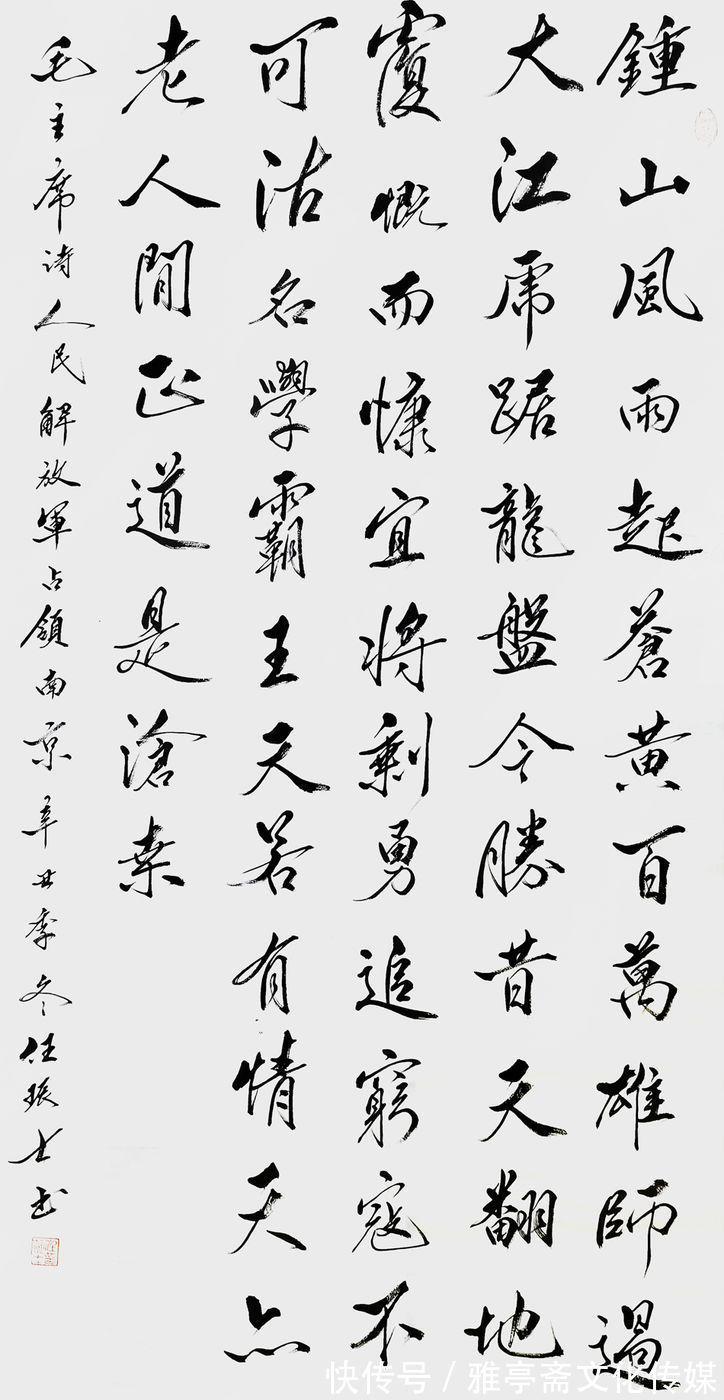 鍾山風雨起蒼黄百萬雄師過
大江虎踞龍盤今勝昔天翻地
覆慨而慷宜將剩勇追窮寇不
可沽名學霸王天若有情天亦
老人間正道是滄桑
毛主席诗人民解放軍占領南京辛丑季冬任振士书
快传号 / 雅亭斋文化传媒